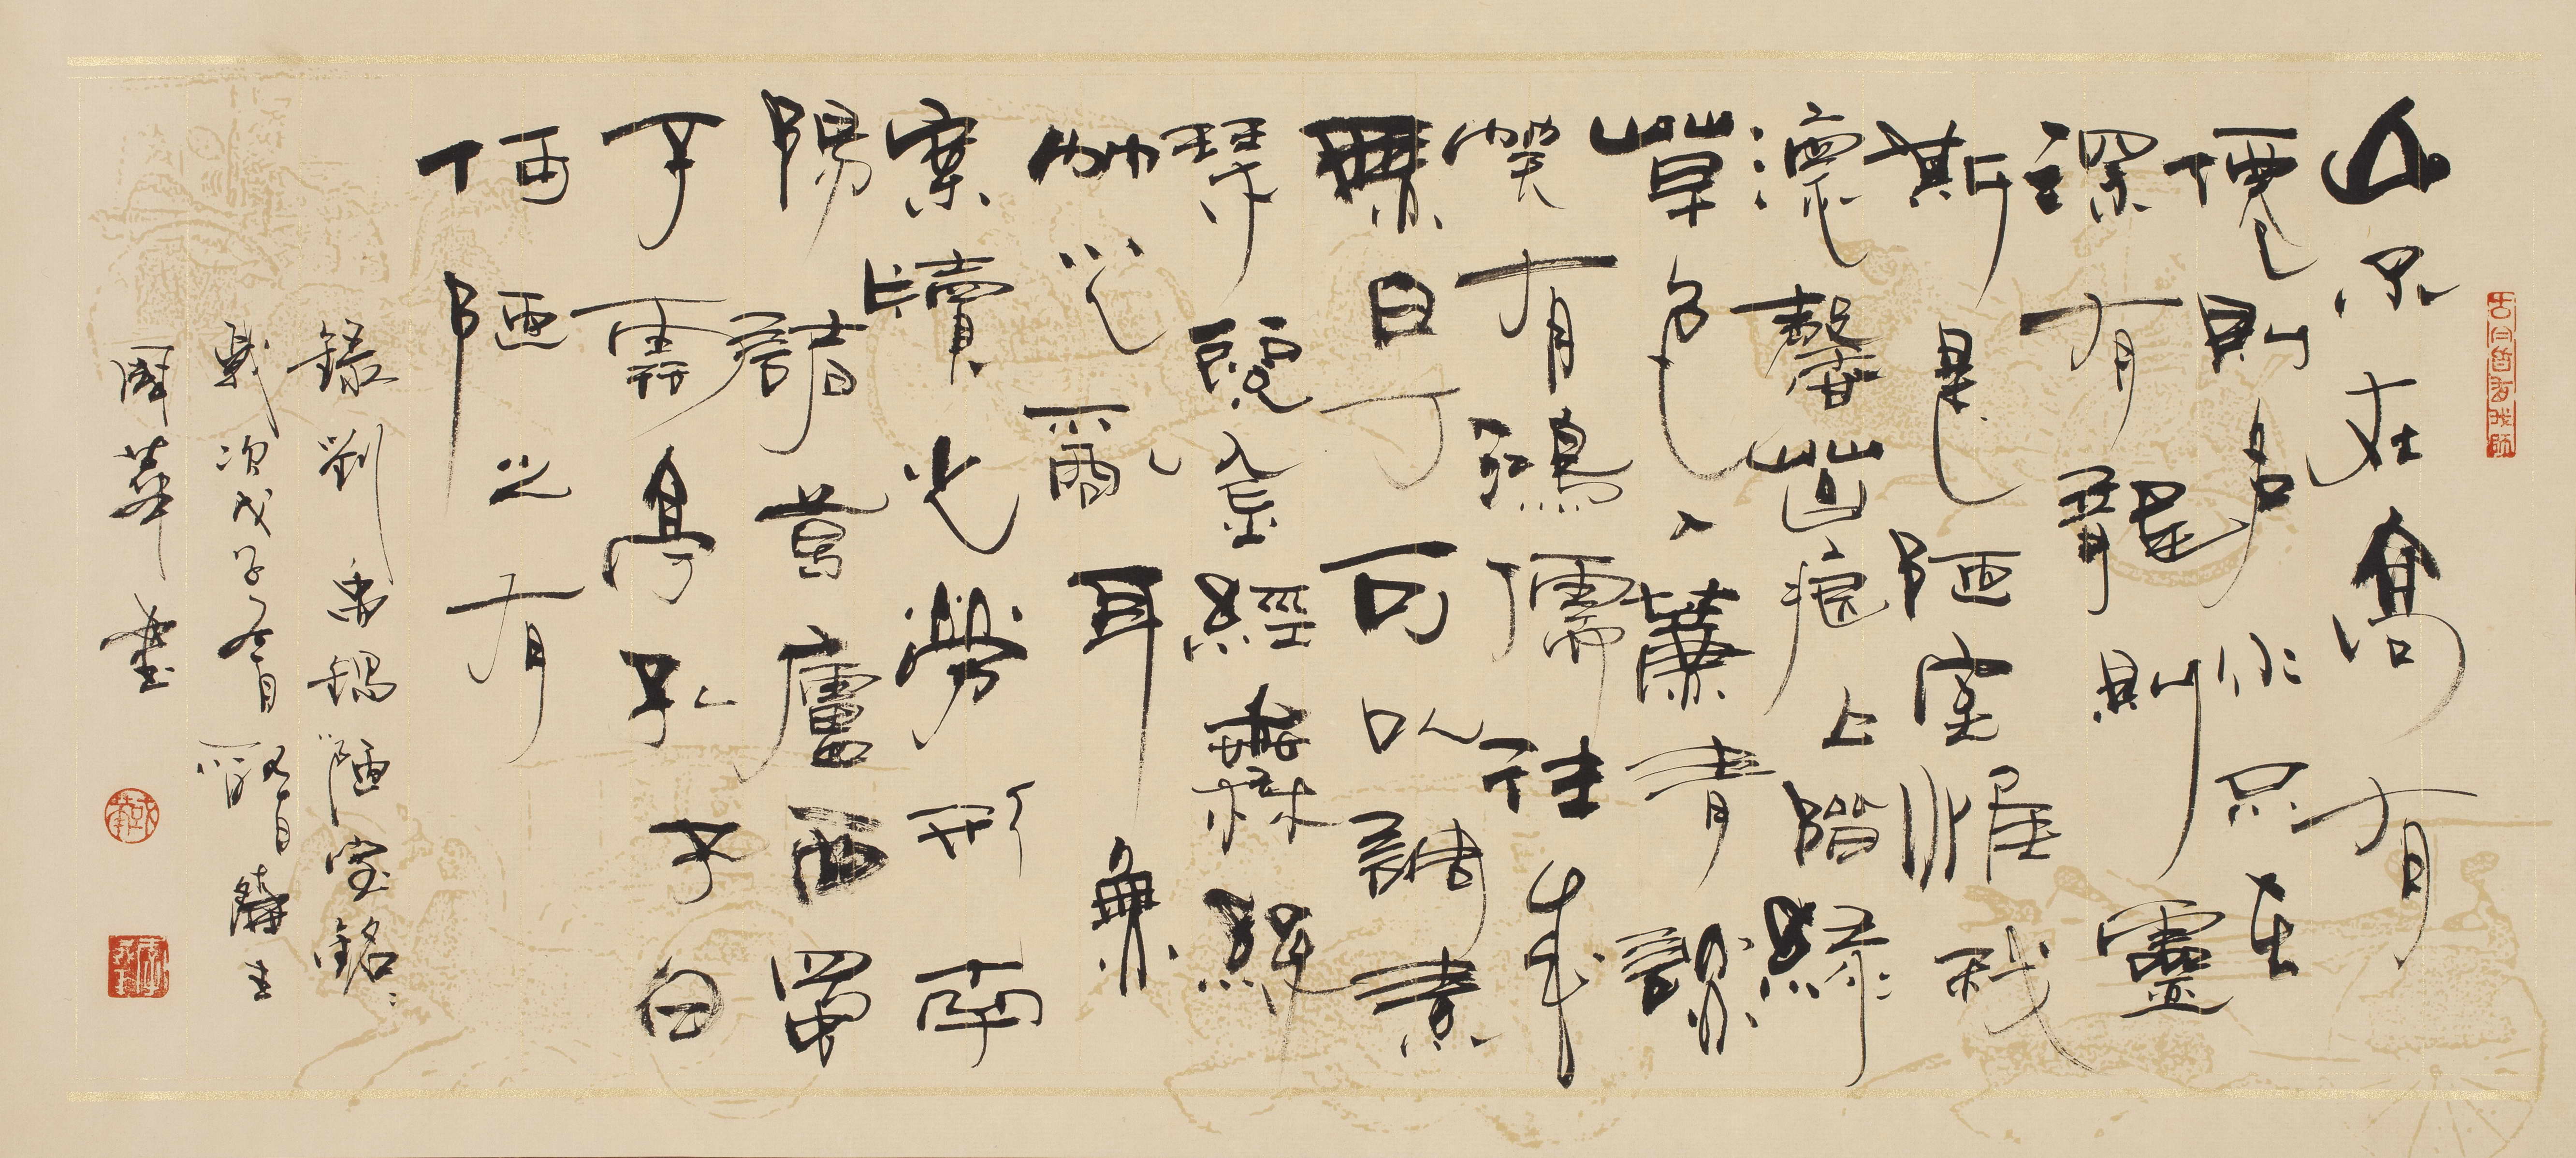 山不在高有
僊則名水不在
深有龍則靈
斯是陋室惟我
德馨苔痕上階綠
草色入簾青談
笑有鴻儒往來
無白丁可以調素
琴閱金經無絲
竹之亂耳無
案牘之勞形南
陽諸葛廬西蜀
子雲亭孔子曰
何陋之有
錄劉禹錫陋室銘
歲次戊子春月
國華書